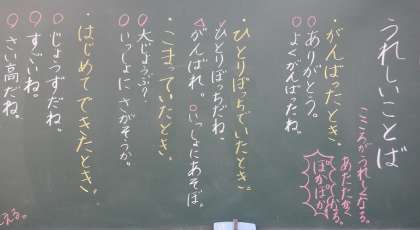 うれしいことば
こころがうれしくなる。
あたたかくなる。
ぽかぽか
・がんばったとき。
○ありがとう。
○よくがんばったね。
・ひとりぼっちでいたとき。
ひとりぼっちだね。
△がんばれ。○いっしょにあそぼ。
・こまっていたとき。
○大じょうぶ?
○いっしょにさがそうか。
・はじめてできたとき。
○じょうずだね。
○すごいね。
○さい高だね。